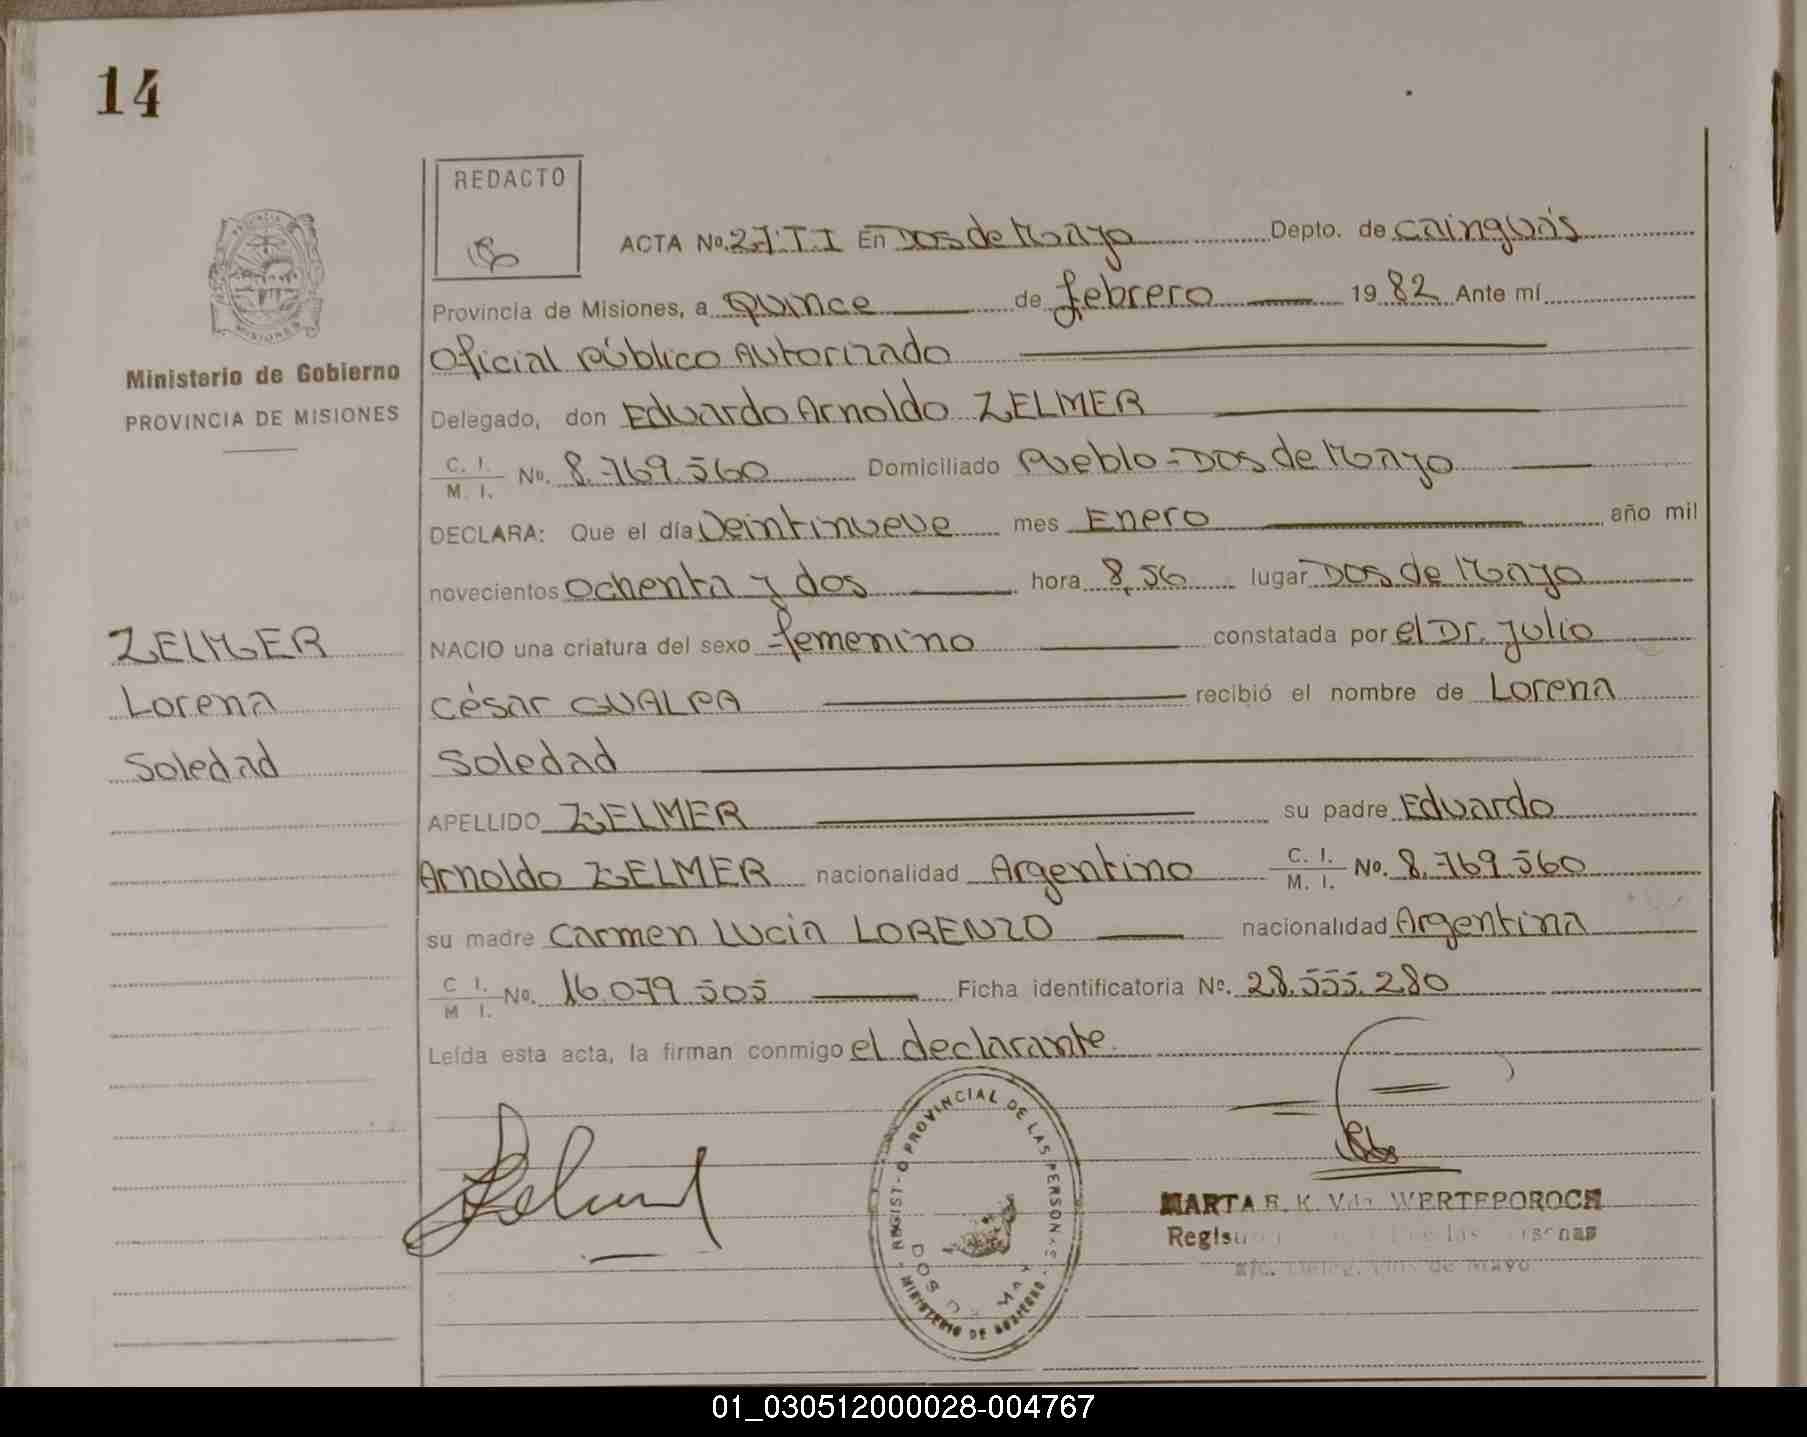 14
REDACTO
ACTA No. 27.T.I En Dos de Mayo Depto. de Cainguás
Provincia de Misiones, a Quince de febrero 1982 Ante mí
Oficial Público Autorizado
Ministerio de Gobierno
PROVINCIA DE MISIONES
Delegado, don Eduardo Arnoldo ZELMER
C. I. / M. I. No. 8.769.560 Domiciliado Pueblo-Dos de Mayo
DECLARA: Que el día Veintinueve mes Enero año mil
novecientos ochenta y dos hora 8,56 lugar Dos de Mayo
ZELMER
Lorena
Soledad
NACIO una criatura del sexo femenino constatada por el Dr. Julio
César GUALPA recibió el nombre de Lorena
Soledad
APELLIDO ZELMER su padre Eduardo
Arnoldo ZELMER nacionalidad Argentino C. I. / M. I. No. 8.769.560
su madre Carmen Lucia LORENZO nacionalidad Argentina
C I. / M I. No. 16.079.505 Ficha identificatoria No. 28.555.280
Leída esta acta, la firman conmigo el declarante.
PROVINCIAL DE LAS PERSONAS
MINISTERIO DE GOBIERNO
MARTA R. K. Vda. WERTEPOROCH
01_030512000028-004767